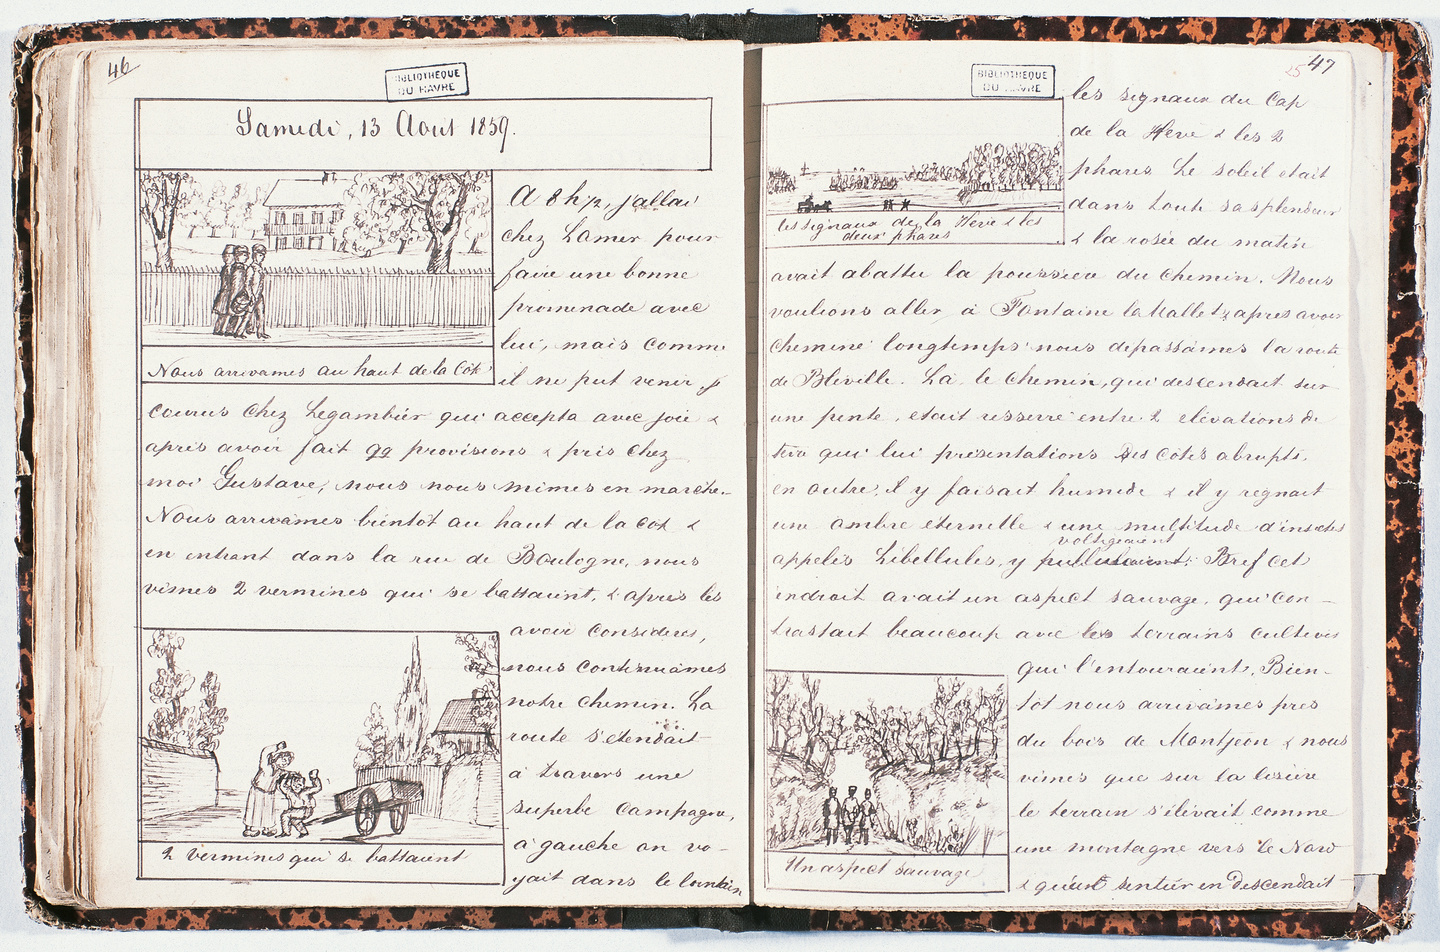 46
BIBLIOTHEQUE
DU HAVRE
Samedi, 13 Août 1859.
A 8 h 1/2, j'allai
chez Lamer pour
faire une bonne
promenade avec
lui, mais comme
il ne put venir, je
Nous arrivames au haut de la Côte
courus chez Legambier qui accepta avec joie &
après avoir fait qq provisions & pris chez
moi Gustave, nous nous mîmes en marche.
Nous arrivâmes bientôt au haut de la côte &
en entrant dans la rue de Boulogne, nous
vîmes 2 vermines qui se battaient, & après les
avoir considérés,
nous continuâmes
notre chemin. La
route s'étendait
à travers une
superbe campagne,
à gauche on vo-
yait dans le lointain
2 vermines qui se battaient
47
25
BIBLIOTHEQUE
DU HAVRE
les signaux du Cap
de la Hève & les 2
phares. Le soleil etait
dans toute sa splendeur
& la rosée du matin
les signaux de la Hève & les
deux phares
avait abattu la poussiere du chemin. Nous
voulions aller à Fontaine la Mallet & apres avoir
cheminé longtemps nous dépassâmes la route
de Bléville. Là, le chemin, qui descendait sur
une pente, etait resserré entre 2 élévations de
terre qui lui présentations des côtés abrupts,
en outre, il y faisait humide & il y regnait
une ombre éternelle & une multitude d'insectes
voltigeaient
appelés Libellules, y pullulaient. Bref cet
endroit avait un aspect sauvage, qui con-
trastait beaucoup avec les terrains cultivés
qui l'entouraient. Bien-
tôt nous arrivâmes près
du bois de Montgeon & nous
vîmes que sur la lisière
le terrain s'élevait comme
une montagne vers le Nord
& qu'un sentier en descendait
Un aspect sauvage